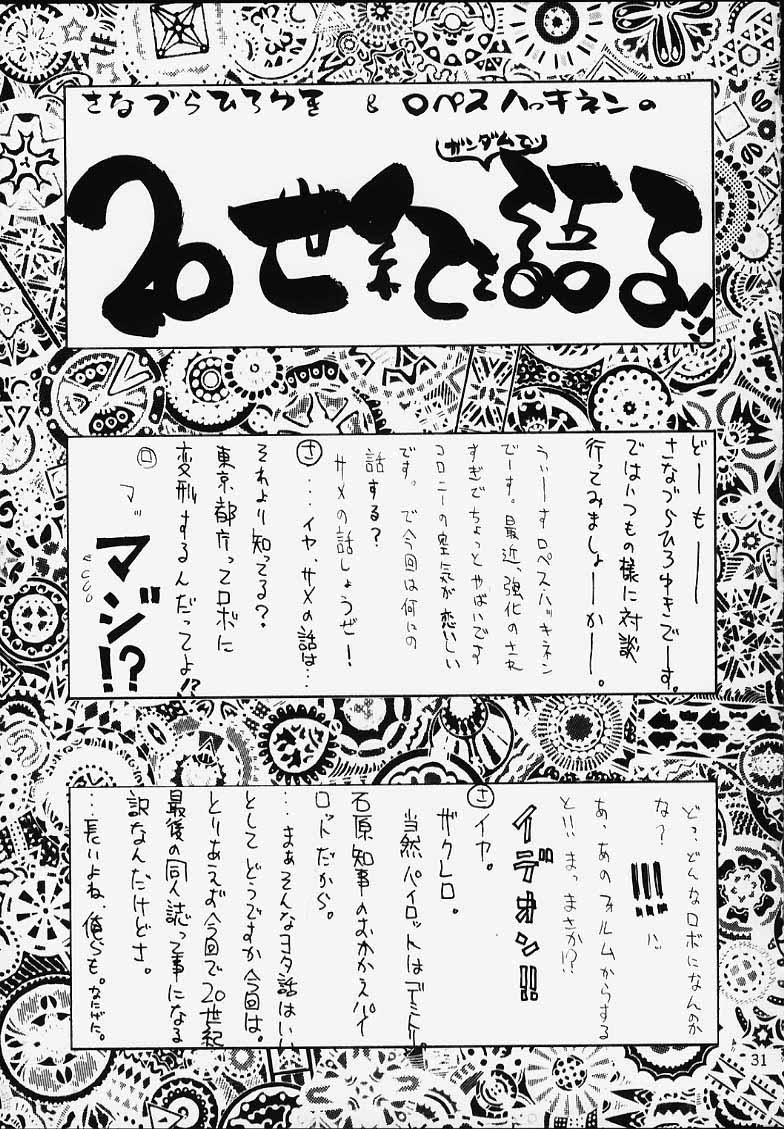 さなづらひろゆき & ロペスハッキネンの
ガンダムで
20世紀を語る!!
どーもーー
さなづらひろゆきでーす。
ではいつもの様に対談
行ってみましょーかー。
うぃーすロペス・ハッキネン
でーす。最近、強化のされ
すぎでちょっとやばいです
コロニーの空気が恋しい
です。で今回は何の
話する?
サメの話しようぜー!
さ…イヤ、サメの話は…
それより知ってる?
東京都庁ってロボに
変形するんだってよ!?
ロ マッ
マジ!?
どっ、どんなロボになんのか
な?
!!! ハッ
あ、あのフォルムからする
と!!まっまさか!?
イデオン!!
さ イヤ。
ザクレロ。
当然パイロットはデミトリー。
石原知事のおかかえパイ
ロットだから。
…まぁそんなヨタ話はいい
としてどうですか今回は。
とりあえず今回で20世紀
最後の同人誌って事になる
訳なんだけどさ。
…長いよね、俺らも。
31